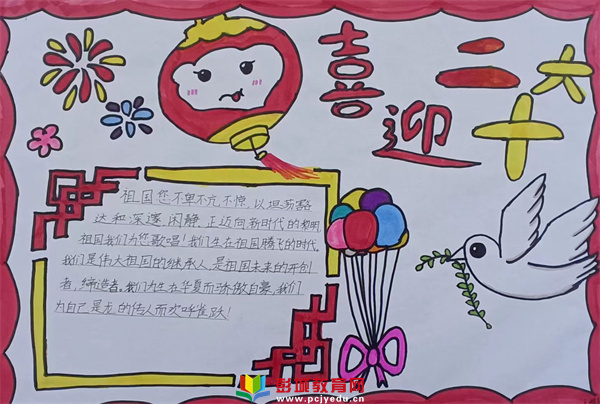 喜迎二十六
祖国您不卑不亢、不惊,以坦荡豁
达和深邃、闲静,正迈向新时代的黎明
祖国我们为您歌唱!我们生在祖国腾飞的时代,
我们是伟大祖国的继承人,是祖国未来的开创
者,缔造者,我们为生在华夏而骄傲自豪,我们
为自己是龙的传人而欢呼雀跃!
彭城教育网
www.pcjyedu.cn